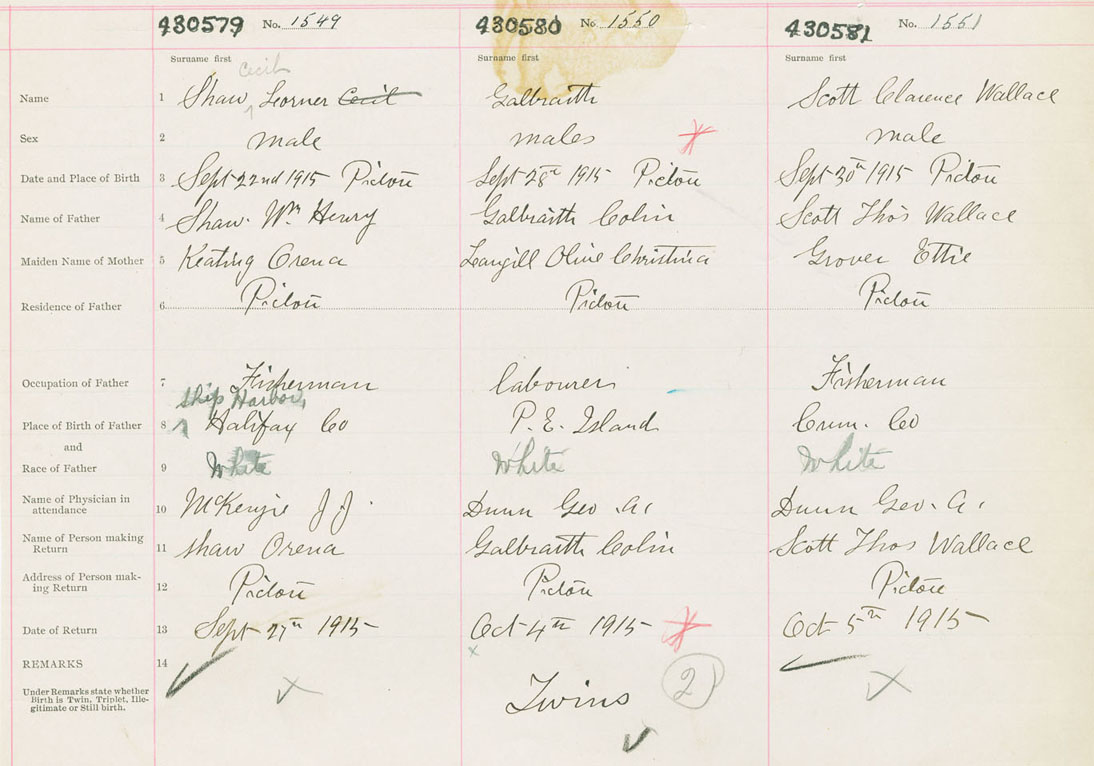 430579 No. 1549 430580 No 1550 430581 No. 1551
Surname first Surname first Surname first
Cecil
Name 1 Shaw, Lorner Cecil Galbraith Scott Clarence Wallace
Sex 2 male males male
Date and Place of Birth 3 Sept 22nd 1915 Pictou Sept 28th 1915 Pictou Sept 30th 1915 Pictou
Name of Father 4 Shaw. Wm Henry Galbraith Colin Scott Thos Wallace
Maiden Name of Mother 5 Keating Orena Langill Olive Christina Grover Ettie
Residence of Father 6 Pictou Pictou Pictou
Occupation of Father 7 Fisherman labourer Fisherman
Ship Harbor,
Place of Birth of Father 8 Halifax Co P. E. Island Cum. Co
and
Race of Father 9 White White White
Name of Physician in
attendance 10 McKenzie J. J. Dunn Geo. A. Dunn Geo. A.
Name of Person making
Return 11 Shaw Orena Galbraith Colin Scott Thos Wallace
Address of Person mak-
ing Return 12 Pictou Pictou Pictou
Date of Return 13 Sept 27th 1915 Oct 4th 1915 Oct 5th 1915
REMARKS 14
Under Remarks state whether
Birth is Twin, Triplet, Ille-
gitimate or Still birth.
Twins 2